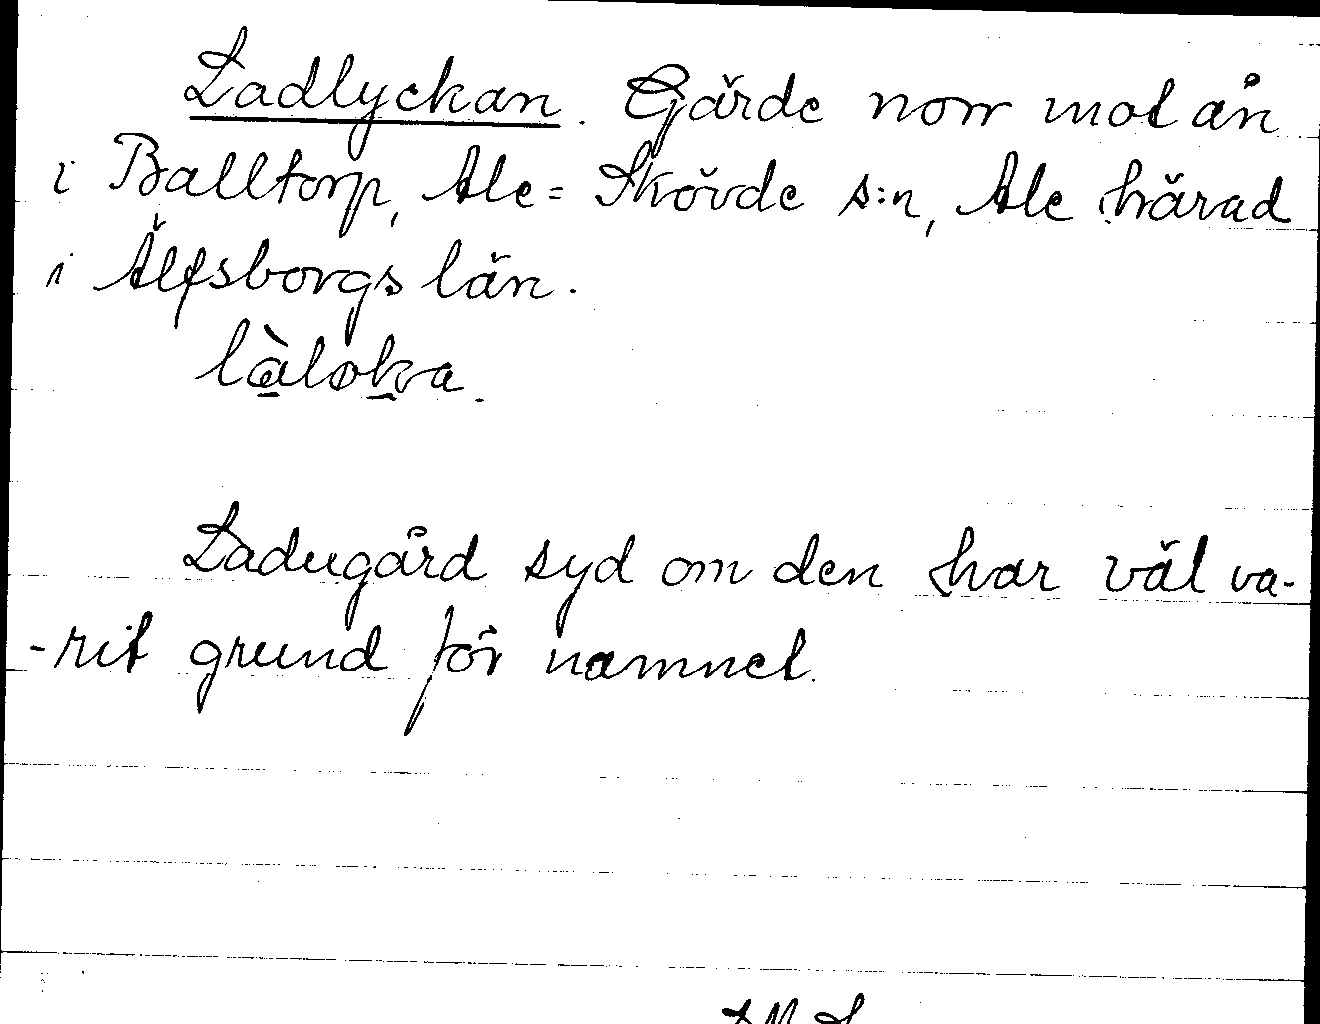 Ladlyckan. Gärde norr mot ån
i Balltorp, Ale=Skövde s:n, Ale härad
i Älfsborgs län.
làløkra.
Ladugård syd om den har väl va-
-rit grund för namnet.